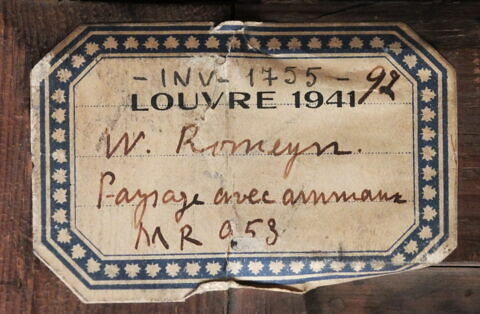 - INV- 1755 - 92
LOUVRE 1941
W. Romeyn.
Paysage avec animaux
MR 953